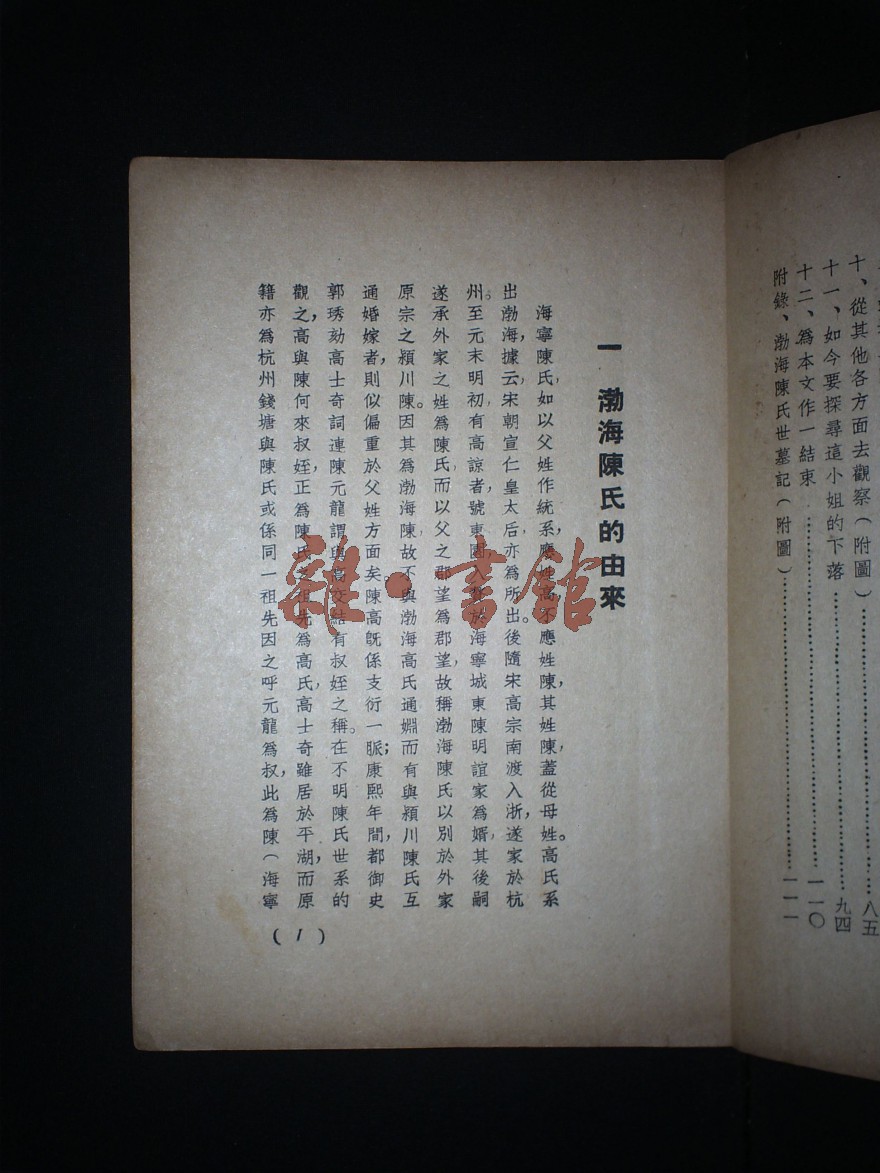 十、從其他各方面去觀察(附圖)……八五
十一、如今要探尋這小姐的下落……九四
十二、爲本文作一結束……一一〇
附錄、渤海陳氏世墓記(附圖)……一一一
一 渤海陳氏的由來
海寧陳氏,如以父姓作統系,應姓高不應姓陳,其姓陳,蓋從母姓。高氏系
出渤海,據云,宋朝宣仁皇太后亦爲所出。後隨宋高宗南渡入浙,遂家於杭
州。至元末明初,有高諒者,號東園,入贅於海寧城東陳明誼家爲婿,其後嗣
遂承外家之姓爲陳氏,而以父之郡望爲郡望,故稱渤海陳氏以別於外家
原宗之潁川陳。因其爲渤海陳,故不與渤海高氏通婣,而有與潁川陳氏互
通婚嫁者,則似偏重於父姓方面矣。陳高旣係支衍一脈;康熙年間,都御史
郭琇劾高士奇詞連陳元龍,謂與高交結,有叔姪之稱。在不明陳氏世系的
觀之,高與陳何來叔姪,正爲陳氏之祖先爲高氏,高士奇雖居於平湖,而原
籍亦爲杭州錢塘,與陳氏或係同一祖先,因之呼元龍爲叔,此爲陳(海寧
(1)
雜·書館